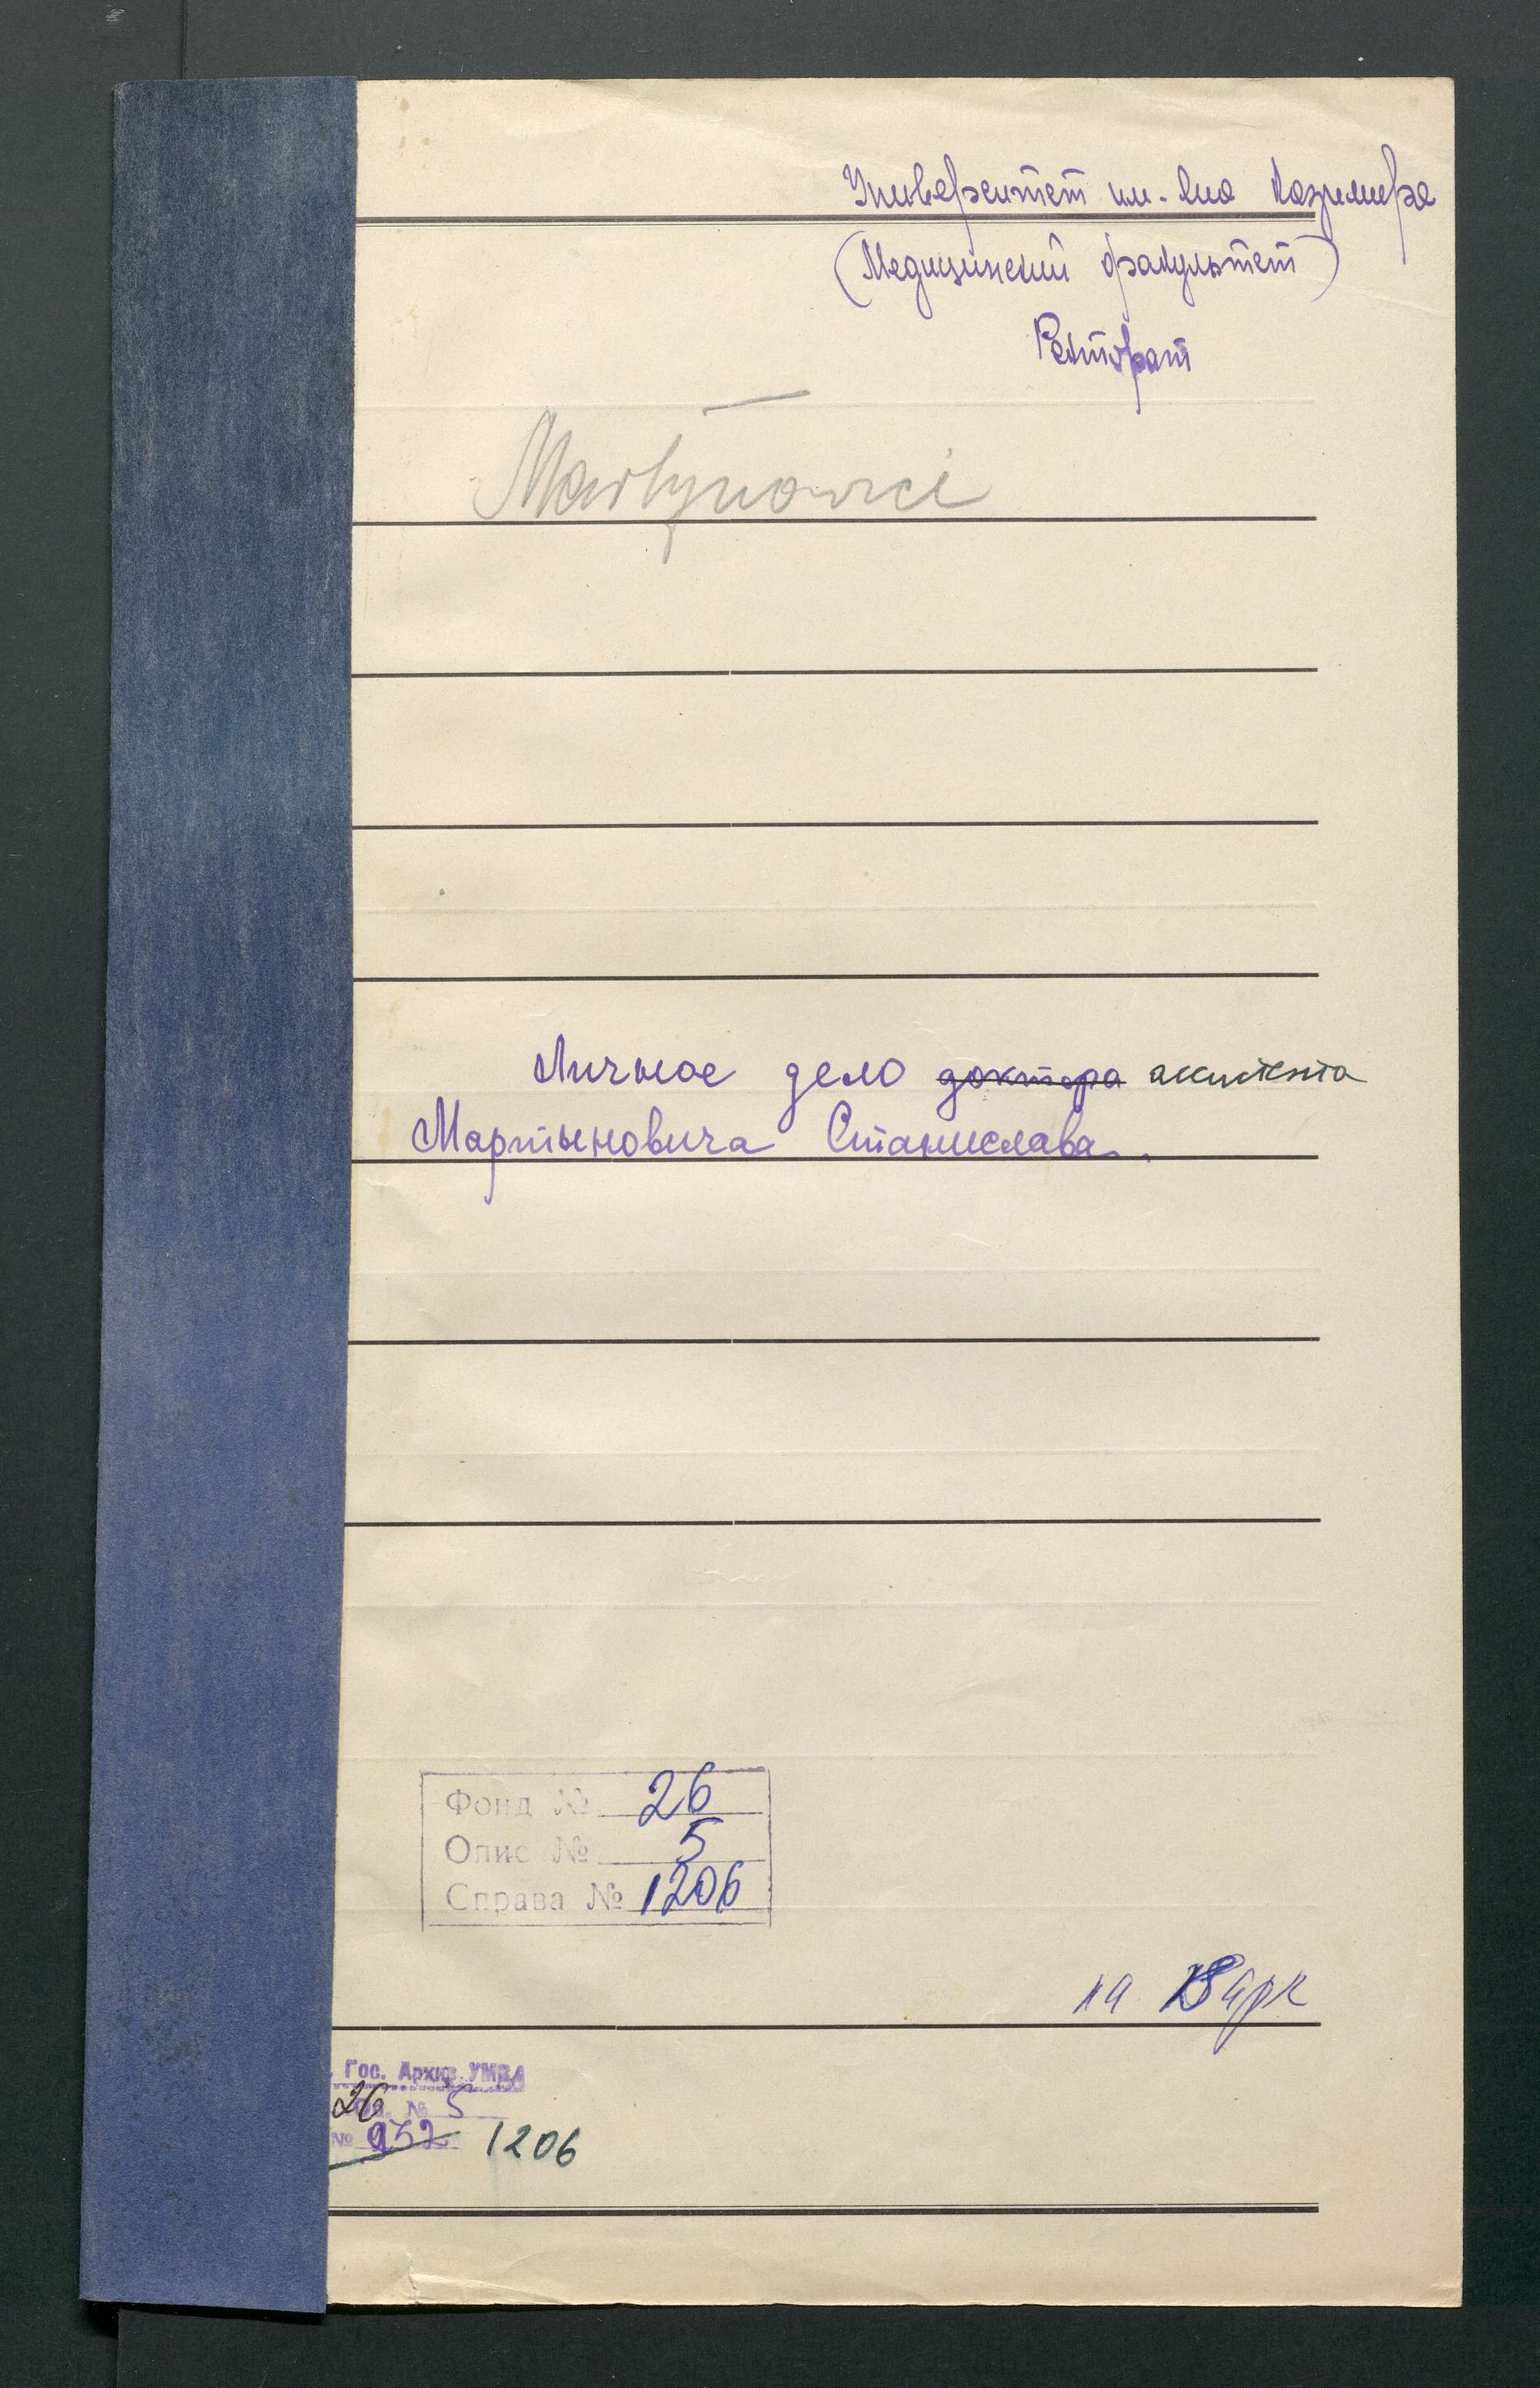 Университет им. Яна Казимира
(Медицинский факультет)
Ректорат
Личное дело доктора ассистента
Мартыновича Станислава.
Фонд № 26
Опис № 5
Справа № 1206
на арк
Гос. Архив УМВД
26 оп. № 5
№ 952 1206